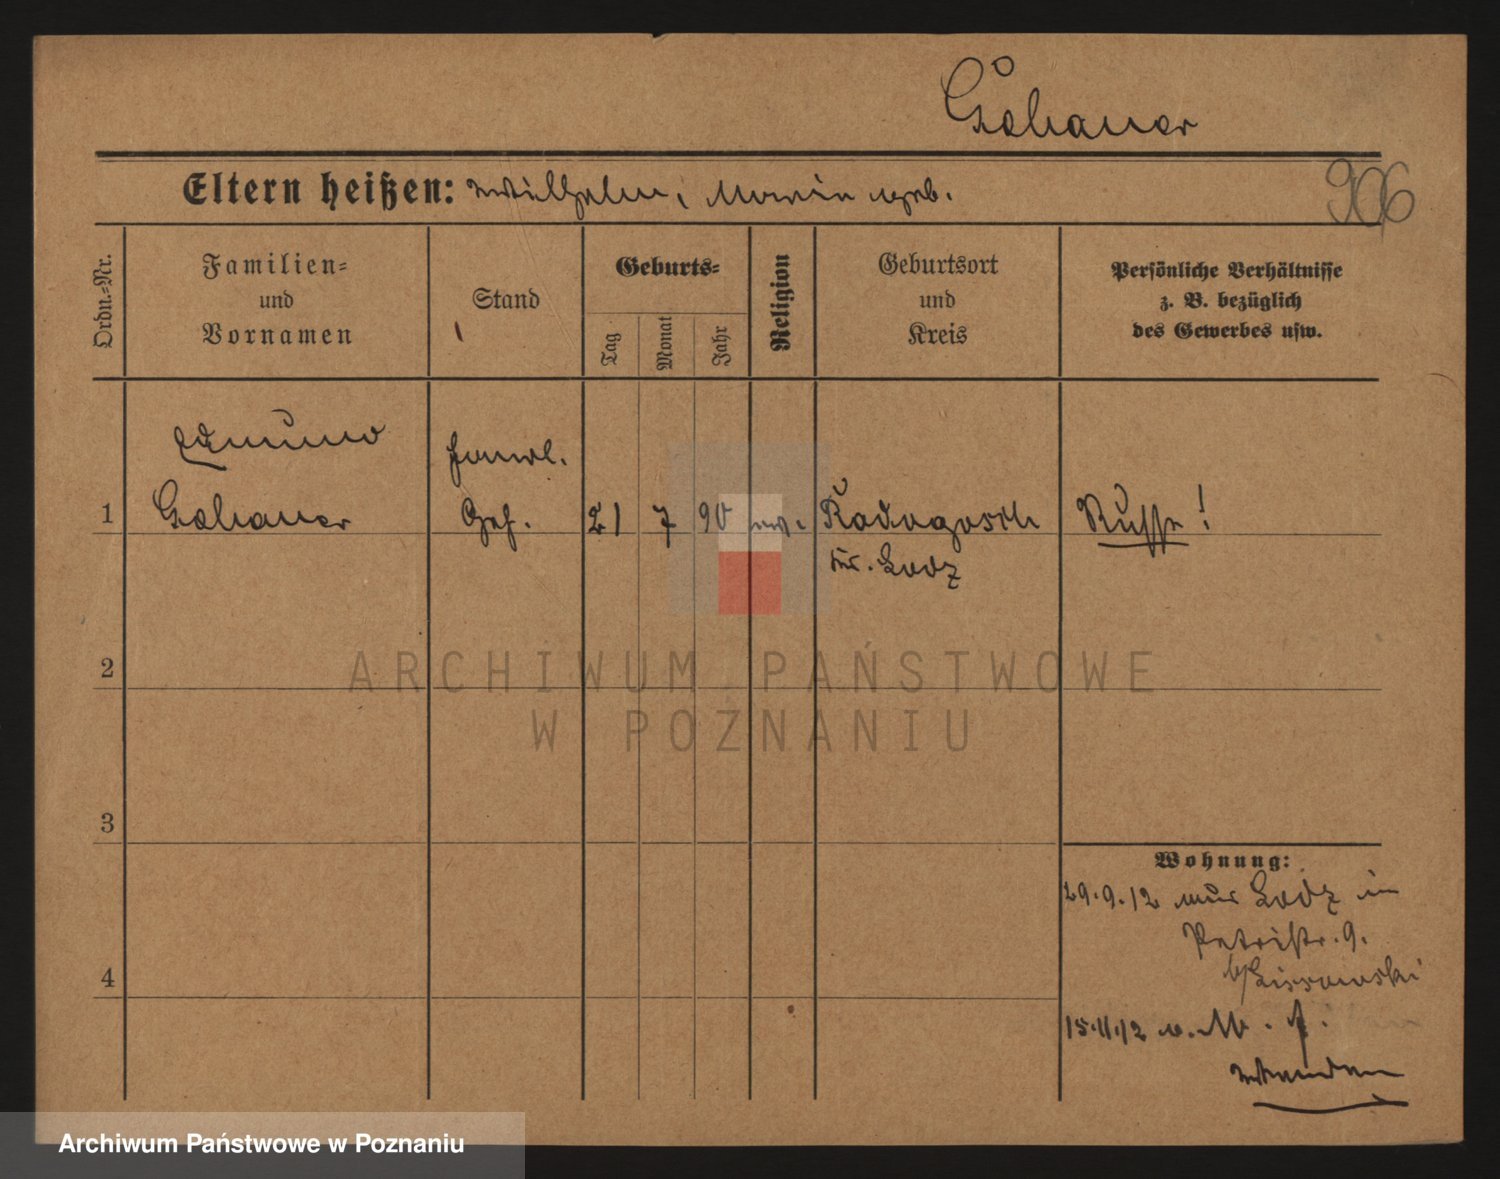 Gohauer
Eltern heißen: Wilhelm, Maria geb.
906
Ordn.-Nr.
Familien-
und
Vornamen
Stand
Geburts-
Tag
Monat
Jahr
Religion
Geburtsort
und
Kreis
Persönliche Verhältnisse
z. B. bezüglich
des Gewerbes usw.
Edmund
Gohauer
Handl.
Geh.
1
21 7 90 ev.
Radogosch
Kr. Lodz
Russe!
2
3
4
Wohnung:
29.9.12 aus Lodz in
Petristr. 9.
b/Lissowski
15.11.12 v.
wenden
ARCHIWUM PAŃSTWOWE
W POZNANIU
Archiwum Państwowe w Poznaniu